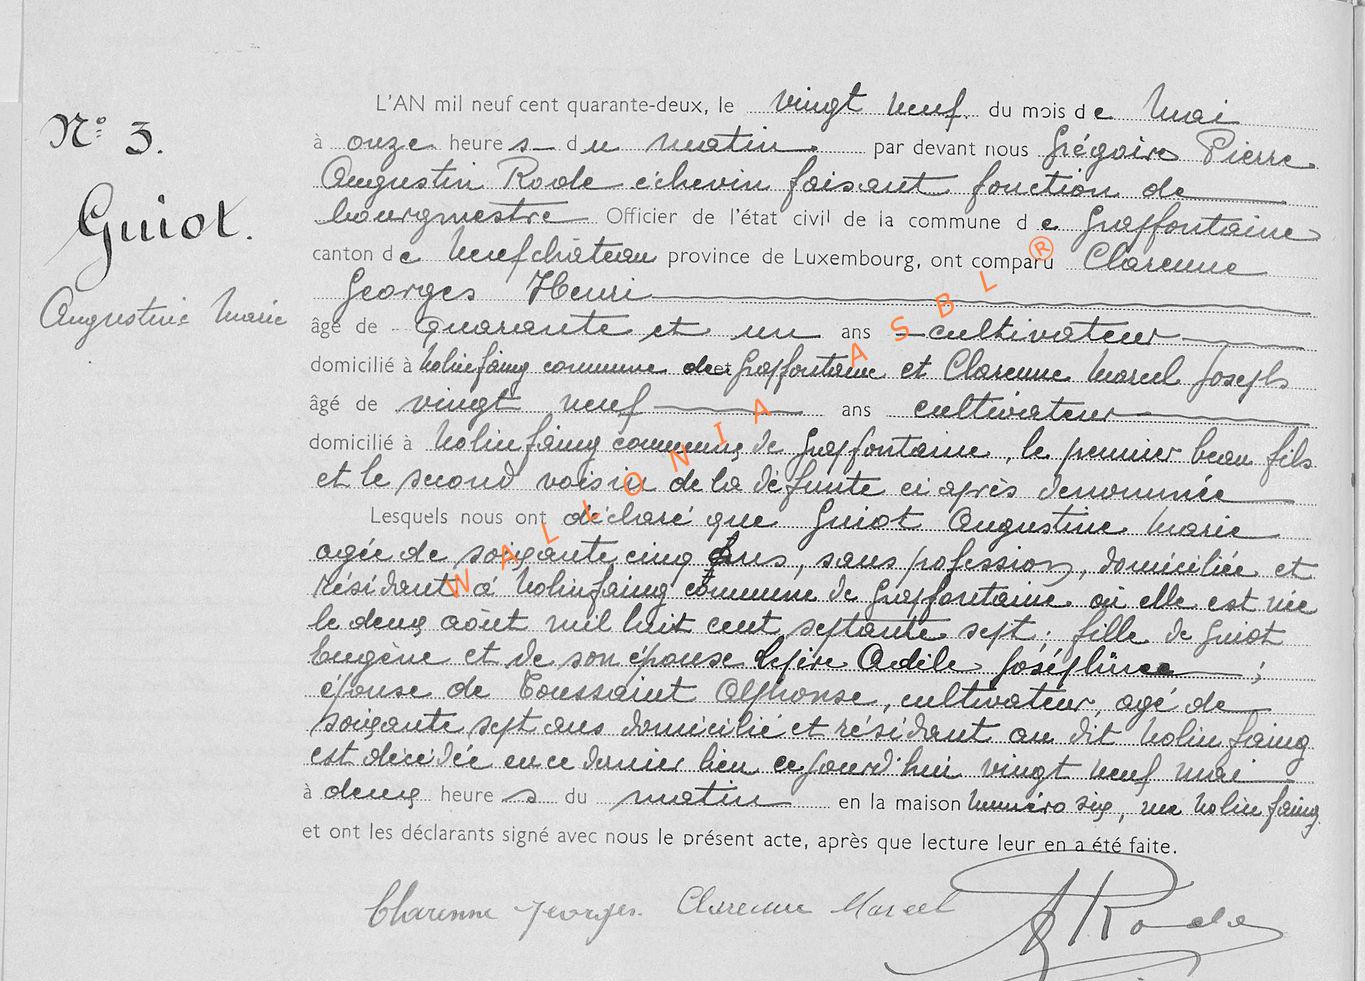 N° 3.
Guiot.
Augustine Marie
L'AN mil neuf cent quarante-deux, le vingt neuf du mois de Mai
à onze heures du matin par devant nous Grégoire Pierre
Augustin Rode échevin faisant fonction de
bourgmestre Officier de l'état civil de la commune de Graffontaine
canton de Neufchâteau province de Luxembourg, ont comparu Clarenne
Georges Henri
âgé de quarante et un ans cultivateur
domicilié à Nolinfaing commune de Graffontaine et Clarenne Marcel Joseph
âgé de vingt neuf ans cultivateur
domicilié à Nolinfaing commune de Graffontaine, le premier beau fils
et le second voisin de la défunte ci après dénommée
Lesquels nous ont déclaré que Guiot Augustine Marie
agée de soixante cinq ans, sans profession, domiciliée et
résidant à Nolinfaing commune de Graffontaine où elle est née
le deux août mil huit cent septante sept; fille de Guiot
Eugène et de son épouse Adèle Joséphine;
épouse de Toussaint Alphonse, cultivateur, agé de
soixante sept ans domicilié et résidant au dit Nolinfaing
est décédée en ce dernier lieu ce jourd'hui vingt neuf mai
à deux heures du matin en la maison numéro six, Nolinfaing
et ont les déclarants signé avec nous le présent acte, après que lecture leur en a été faite.
Clarenne Georges. Clarenne Marcel A Rode
WALLONIA ASBL ®